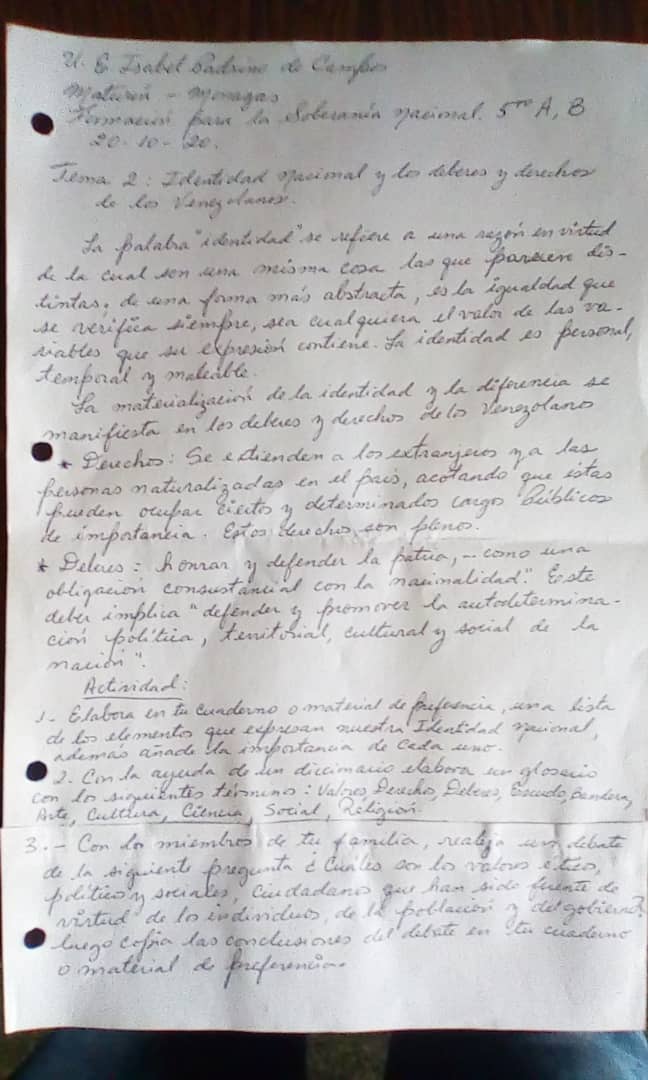 U. E Isabel Padrino de Campos
Maturín - Monagas
Formación para la Soberanía Nacional. 5to A, B
20-10-20.
Tema 2: Identidad Nacional y los deberes y derechos
de los Venezolanos.
La palabra "identidad" se refiere a una razón en virtud
de la cual son una misma cosa las que parecen dis-
tintas; de una forma más abstracta, es la igualdad que
se verifica siempre, sea cual quiera el valor de las va-
riables que su expresión contiene. La identidad es personal,
temporal y maleable.
La materialización de la identidad y la diferencia se
manifiesta en los deberes y derechos de los Venezolanos
* Derechos: Se extienden a los extranjeros y a las
personas naturalizadas en el país, acotando que éstas
pueden ocupar ciertos y determinados cargos Públicos
de importancia. Estos derechos son plenos.
* Deberes: honrar y defender la patria, - como una
obligación consustancial con la nacionalidad." Este
deber implica "defender y promover la autodetermina-
ción política, territorial, cultural y social de la
nación".
Actividad:
1- Elabora en tu cuaderno o material de preferencia, una lista
de los elementos que expresan nuestra Identidad Nacional,
además añade la importancia de cada uno.
2. Con la ayuda de un diccionario elabora un glosario
con los siguientes término: Valores Derecho, Deberes, Escudo, Bandera,
Arte, Cultura, Ciencia, Social, Religión.
3.- Con los miembros de tu familia, realiza un debate
de la siguiente pregunta ¿Cuáles son los valores éticos,
político y sociales, ciudadano que han sido fuente de
virtud de los individuos, de la población y del gobierno?
luego copia las conclusiones del debate en tu cuaderno
o material de preferencia.